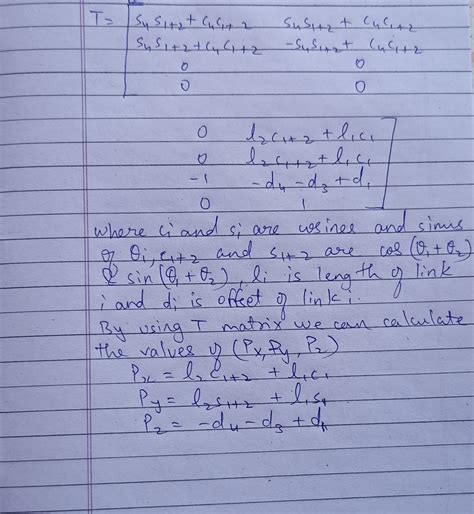 T = s₄s₁₊₂ + c₄c₁₊₂ s₄s₁₊₂ + c₄c₁₊₂
s₄s₁₊₂ + c₄c₁₊₂ -s₄s₁₊₂ + c₄c₁₊₂
0 0
0 0
0 l₂c₁₊₂ + l₁c₁
0 l₂c₁₊₂ + l₁c₁
-1 -d₄ - d₃ + d₁
0 1
where ci and si are cosines and sinus
of θi, c₁₊₂ and s₁₊₂ are cos (θ₁ + θ₂)
& sin (θ₁ + θ₂), li is length of link
i and di is offset of link i.
By using T matrix we can calculate
the values of (Px, Py, Pz)
Px = l₂c₁₊₂ + l₁c₁
Py = l₂s₁₊₂ + l₁s₁
Pz = -d₄ - d₃ + d₁